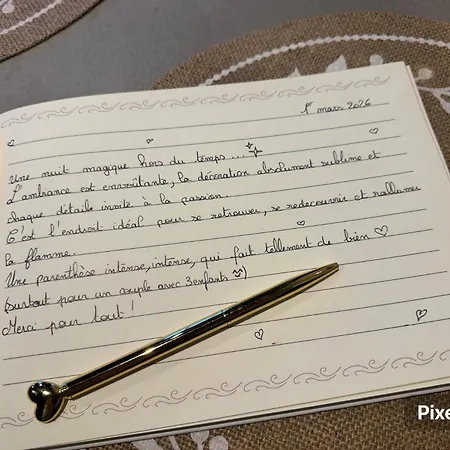 1er mars 2026
Une nuit magique hors du temps...
L'ambiance est envoûtante, la décoration absolument sublime et
chaque détails invite à la passion.
C'est l'endroit idéal pour se retrouver, se redécouvrir et rallumer
la flamme.
Une parenthèse intense, intense, qui fait tellement de bien ♡
(surtout pour un couple avec 3 enfants)
Merci pour tout !
Pixe